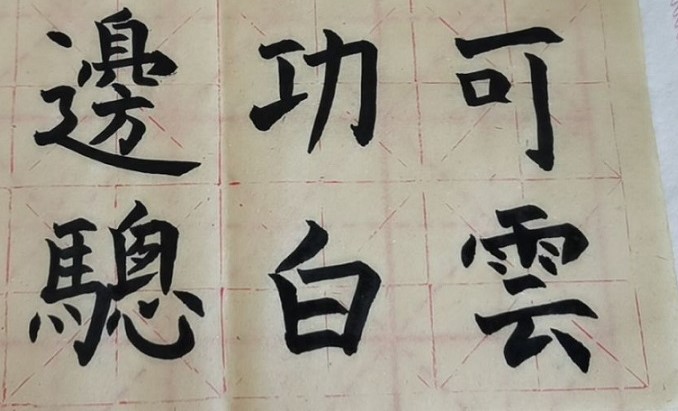 可雲
功白
邊驄